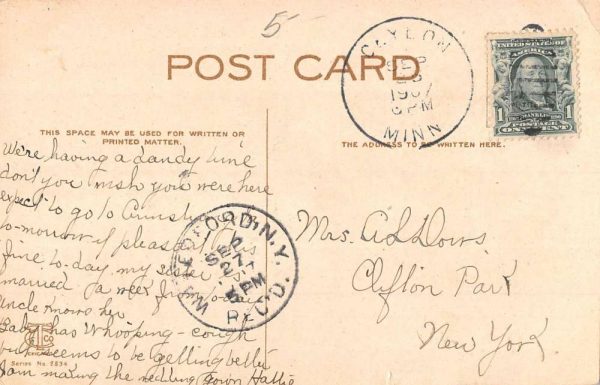 5
POST CARD
CEYLON
SEP
1907
6 PM
MINN
UNITED STATES OF AMERICA
1 FRANKLIN 1
POSTAGE
ONE CENT
THIS SPACE MAY BE USED FOR WRITTEN OR
PRINTED MATTER.
THE ADDRESS TO BE WRITTEN HERE.
We're having a dandy time
don't you wish you were here
expect to go to
to-morrow if pleasant. It's
fine to-day. my sister is
married a week from today
Uncle knows her
Baby has whooping-cough
but seems to be getting better
I am making the wedding gown Hattie
N.Y.
SEP
27
5 PM
REC'D.
Mrs. A L Dows.
Clifton Park
New York.
CHICAGO
Series No.